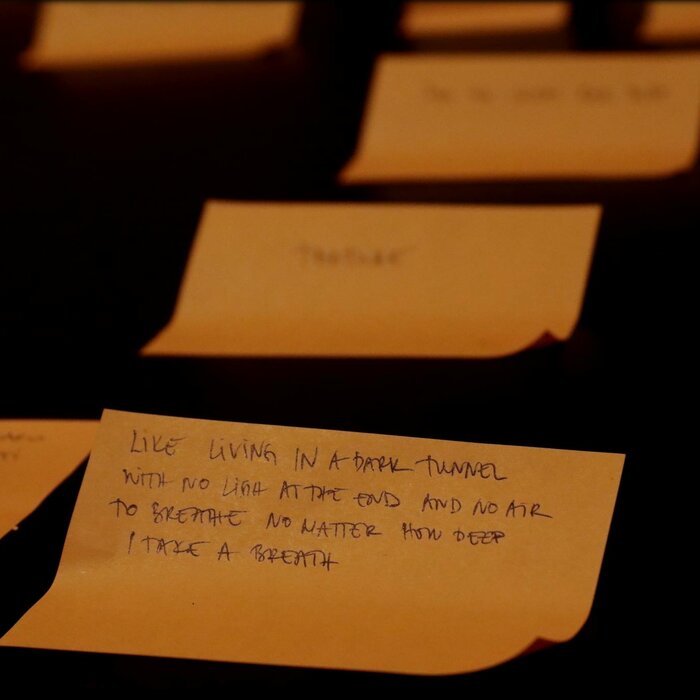 LIKE LIVING IN A DARK TUNNEL
WITH NO LIGH AT THE END AND NO AIR
TO BREATHE NO MATTER HOW DEEP
I TAKE A BREATH